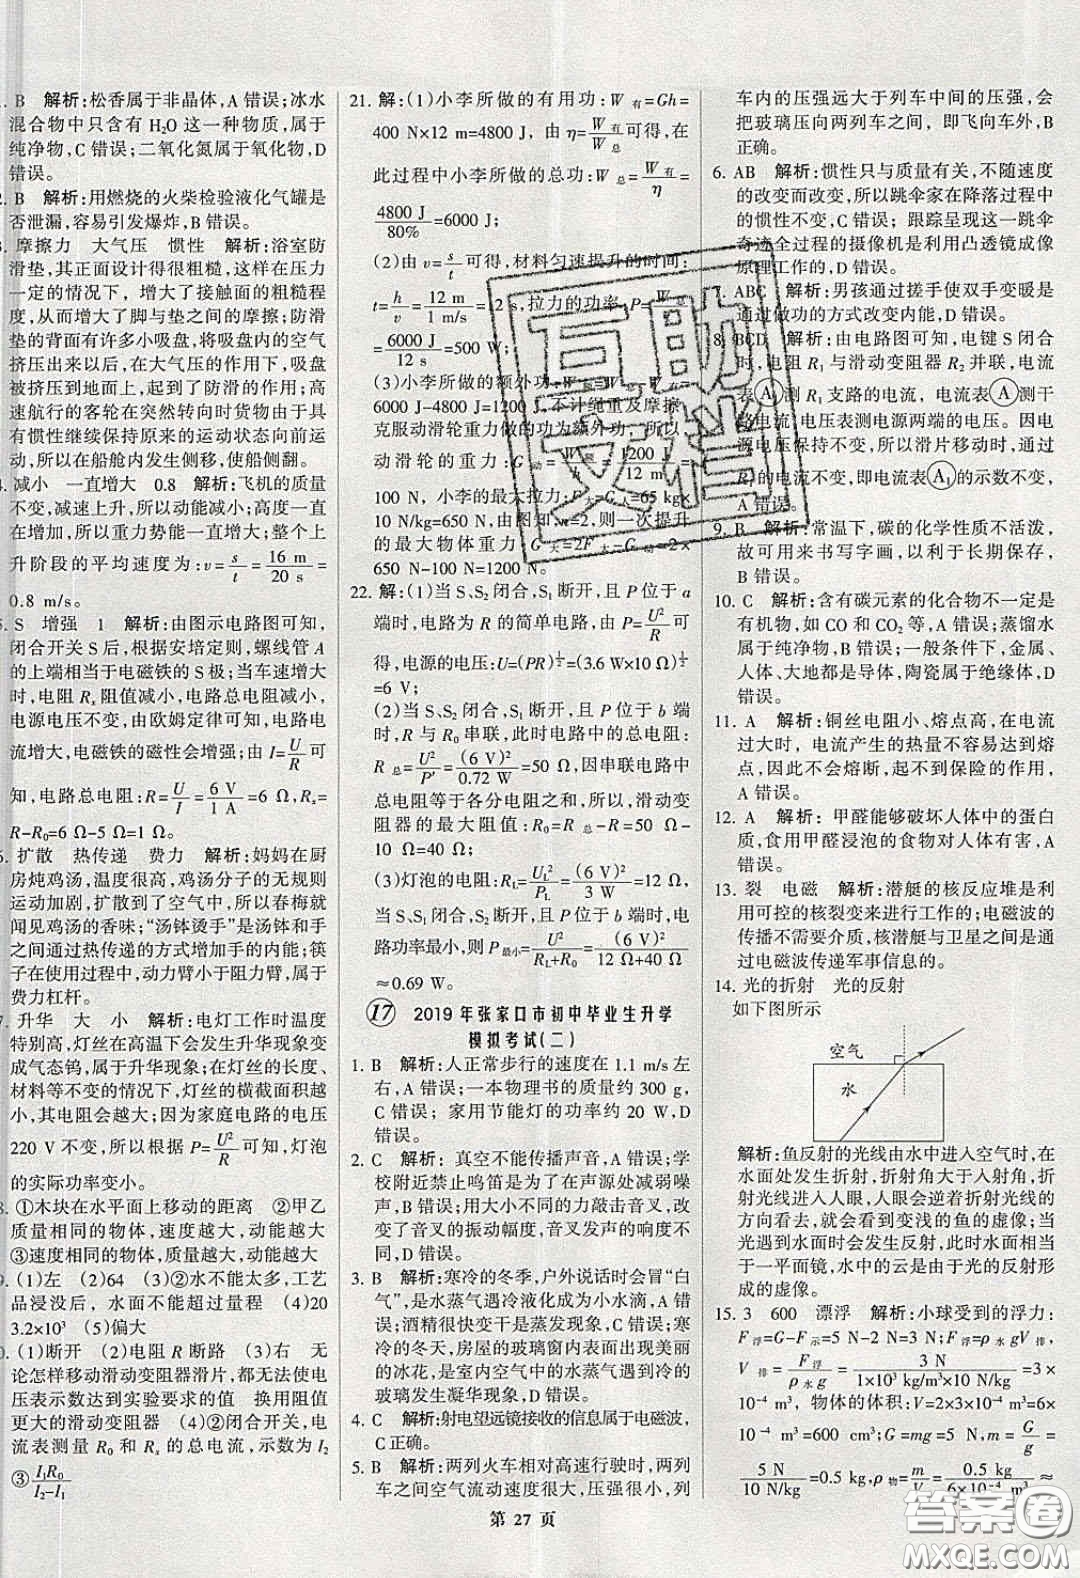 B 解析:松香属于非晶体,A错误;冰水
混合物中只含有H₂O这一种物质,属于
纯净物,C错误;二氧化氮属于氧化物,D
错误。
B 解析:用燃烧的火柴检验液化气罐是
否泄漏,容易引发爆炸,B错误。
摩擦力 大气压 惯性 解析:浴室防
滑垫,其正面设计得很粗糙,这样在压力
一定的情况下,增大了接触面的粗糙程
度,从而增大了脚与垫之间的摩擦;防滑
垫的背面有许多小吸盘,将吸盘内的空气
挤压出来以后,在大气压的作用下,吸盘
被挤压到地面上,起到了防滑的作用;高
速航行的客轮在突然转向时货物由于具
有惯性继续保持原来的运动状态向前运
动,所以在船舱内发生侧移,使船侧翻。
减小 一直增大 0.8 解析:飞机的质量
不变,减速上升,动能减小;在整个上升过程
中,高度一直在增加,所以重力势能一直增大;上
升阶段的平均速度为:v=s/t=16 m/20 s=
0.8 m/s。
S 增强 1 解析:由图示电路图可知,
闭合开关S后,根据安培定则,螺线管A
的上端相当于电磁铁的S极;当车速增大
时,电阻Rₓ阻值减小,电路总电阻减小,
电源电压不变,由欧姆定律可知,电路电
流增大,电磁铁的磁性会增强;由I=U/R可
知,电路总电阻:R=U/I=6 V/1 A=6 Ω,Rₓ=
R-R₀=6 Ω-5 Ω=1 Ω。
扩散 热传递 费力 解析:妈妈在厨
房炖鸡汤,温度很高,鸡汤分子的无规则
运动加剧,扩散到了空气中,所以春梅就
闻见鸡汤的香味;“汤钵烫手”是汤钵和手
之间通过热传递的方式增加手的内能;筷
子在使用过程中,动力臂小于阻力臂,属于
费力杠杆。
升华 大 小 解析:电灯工作时温度
特别高,钨丝在高温下会发生升华现象变
成气态钨,属于升华现象;在灯丝的长度、
材料等不变的情况下,灯丝的横截面积越
小,其电阻会越大;因为家庭电路的电压
220 V不变,所以根据P=U²/R可知,灯泡
的实际功率变小。
①木块在水平面上移动的距离 ②甲乙
质量相同的物体,速度越大,动能越大
③速度相同的物体,质量越大,动能越大
(1)左 (2)64 (3)②水不能太多,工艺
品浸没后,水面不能超过量程 (4)20
3.2×10³ (5)偏大
(1)断开 (2)电阻R断路 (3)右 无
论怎样移动滑动变阻器滑片,都无法使电
压表示数达到实验要求的值 换用阻值
更大的滑动变阻器 (4)②闭合开关,电
流表测量R₀和Rₓ的总电流,示数为I₂
③I₁R₀/(I₂-I₁)
21. 解:(1)小李所做的有用功:W有=Gh=
400 N×12 m=4800 J,由η=W有/W总可得,在
此过程中小李所做的总功:W总=W有/η=
4800 J/80%=6000 J;
(2)由v=s/t可得,材料匀速提升的时间:
t=h/v=12 m/1 m/s=12 s,拉力的功率:P=W总/t
=6000 J/12 s=500 W;
(3)小李所做的额外功:
6000 J-4800 J=1200 J,不计绳重及摩擦,
克服动滑轮重力做的功为额外功,所以,
动滑轮的重力:G动=W额/h=1200 J/12 m=
100 N,小李的最大拉力:F大=G人=65 kg×
10 N/kg=650 N,由图知,n=2,则一次提升
的最大物体重力:G大=2F大-G动=2×
650 N-100 N=1200 N。
22. 解:(1)当S、S₂闭合,S₁断开,且P位于a
端时,电路为R的简单电路,由P=U²/R可
得,电源的电压:U=(PR)^½=(3.6 W×10 Ω)^½
=6 V;
(2)当S、S₂闭合,S₁断开,且P位于b端
时,R与R₀串联,此时电路中的总电阻:
R总=U²/P'=(6 V)²/0.72 W=50 Ω,因串联电路中
总电阻等于各分电阻之和,所以,滑动变
阻器的最大阻值:R₀=R总-R=50 Ω-
10 Ω=40 Ω;
(3)灯泡的电阻:R_L=U_L²/P_L=(6 V)²/3 W=12 Ω,
当S、S₁闭合,S₂断开,且P位于b端时,
电路功率最小,则P最小=U²/(R_L+R₀)=(6 V)²/(12 Ω+40 Ω)
≈0.69 W。
17 2019年张家口市初中毕业生升学
模拟考试(二)
1. B 解析:人正常步行的速度在1.1 m/s左
右,A错误;一本物理书的质量约300 g,
C错误;家用节能灯的功率约20 W,D
错误。
2. C 解析:真空不能传播声音,A错误;学
校附近禁止鸣笛是为了在声源处减弱噪
声,B错误;用大小不同的力敲击音叉,改
变了音叉的振动幅度,音叉发声的响度不
同,D错误。
3. B 解析:寒冷的冬天,户外说话时会冒“白
气”,是水蒸气遇冷液化成为小水滴,A错
误;酒精是蒸发现象,C错误;寒
冷的冬天,房屋的玻璃窗内表面出现美丽
的冰花,是室内空气中的水蒸气遇到冷
的玻璃发生凝华现象,D错误。
4. C 解析:射电望远镜接收的信息属于电磁波,
C正确。
5. B 解析:两列火车相对高速行驶时,两列
车之间空气流动速度很大,压强很小,列
车内的压强远大于列车中间的压强,会
把玻璃压向两列车之间,即飞向车外,B
正确。
6. AB 解析:惯性只与质量有关,不随速度
的改变而改变,所以跳伞家在降落过程中
的惯性不变,C错误;跟踪呈现这一跳伞
奇迹全过程的摄像机是利用凸透镜成像
原理工作的,D错误。
7. ABC 解析:男孩通过搓手使双手变暖是
通过做功的方式改变内能。
8. BCD 解析:由电路图可知,电键S闭合
后,电阻R₁与滑动变阻器R₂并联,电流
表Ⓐ₁测R₁支路的电流,电流表Ⓐ测干
路电流,电压表测电源两端的电压。因电
源电压保持不变,所以滑片移动时,通过
R₁的电流不变,即电流表Ⓐ₁的示数不变,
A错误。
9. B 解析:常温下,碳的化学性质不活泼,
故可用来书写字画,以利于长期保存,
B错误。
10. C 解析:含有碳元素的化合物不一定是
有机物,如CO和CO₂等,A错误;蒸馏水
属于纯净物,B错误;一般条件下,金属、
人体、大地都是导体,陶瓷属于绝缘体,D
错误。
11. A 解析:铜丝电阻小、熔点高,在电流
过大时,电流产生的热量不容易达到熔
点,因此不会熔断,起不到保险的作用,
A错误。
12. A 解析:甲醛能够破坏人体中的蛋白
质,食用甲醛浸泡的食物对人体有害,A
错误。
13. 裂 电磁 解析:潜艇的核反应堆是利
用可控的核裂变来进行工作的;电磁波的
传播不需要介质,核潜艇与卫星之间是通
过电磁波传递军事信息的。
14. 光的折射 光的反射
如下图所示
空气
水
解析:鱼反射的光线由水中进入空气时,在
水面处发生折射,折射角大于入射角,
折射光线进入人眼,人眼会逆着折射光线的
方向看去,就会看到变浅的鱼的虚像;当
光遇到水面时会发生反射,此时水面相当
于一平面镜,水中的云是由于光的反射形
成的虚像。
15. 3 600 漂浮 解析:小球受到的浮力:
F浮=G-F示=5 N-2 N=3 N;由F浮=ρ水gV排
V排=F浮/ρ水g=3 N/(1×10³ kg/m³×10 N/kg)=3×
10⁻⁴ m³,物体的体积:V=2×3×10⁻⁴ m³=6×
10⁻⁴ m³=600 cm³;由G=mg得,m=G/g=
5 N/10 N/kg=0.5 kg,ρ物=m/V=0.5 kg/6×10⁻⁴ m³≈
第 27 页
互助
文档
答案圈
MXQE.COM